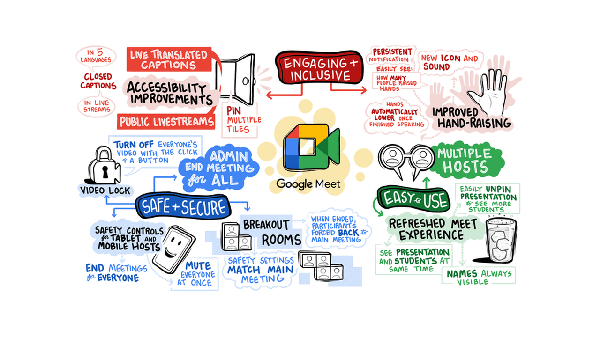 IN 5
LANGUAGES
CLOSED
CAPTIONS
IN LIVE
STREAMS
LIVE TRANSLATED
CAPTIONS
ACCESSIBILITY
IMPROVEMENTS
PUBLIC LIVESTREAMS
PIN
MULTIPLE
TILES
ENGAGING +
INCLUSIVE
PERSISTENT
NOTIFICATION
EASILY SEE
HOW MANY
PEOPLE RAISED
HANDS
HANDS
AUTOMATICALLY
LOWER ONCE
FINISHED SPEAKING
NEW ICON AND
SOUND
IMPROVED
HAND-RAISING
Google Meet
TURN OFF EVERYONE'S
VIDEO WITH THE CLICK
OF A BUTTON
VIDEO LOCK
ADMIN
END MEETING
for ALL
SAFE + SECURE
SAFETY CONTROLS
for TABLET AND
MOBILE HOSTS
END MEETINGS
for EVERYONE
MUTE
EVERYONE
AT ONCE
BREAKOUT
ROOMS
WHEN ENDED,
PARTICIPANTS
FORCED BACK to
MAIN MEETING
SAFETY SETTINGS
MATCH MAIN
MEETING
MULTIPLE
HOSTS
EASY to USE
EASILY UNPIN
PRESENTATION
to SEE MORE
STUDENTS
REFRESHED MEET
EXPERIENCE
SEE PRESENTATION
AND STUDENTS AT
SAME TIME
NAMES ALWAYS
VISIBLE